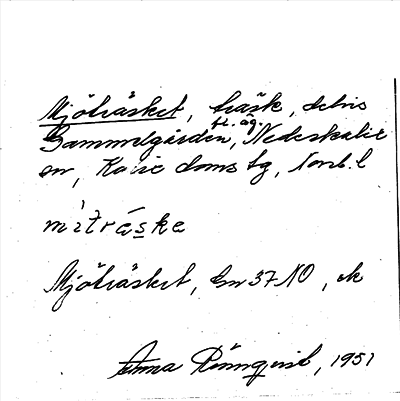 Mjöträsket, träsk, delvis
fr. äg.
Gammelgården, Nederkalix
sn, Karie doms tg, Norrb. l
mìtrá̀ske
Mjöträsket, Gsn 37 NO, ek
Anna Rönnqvist, 1951